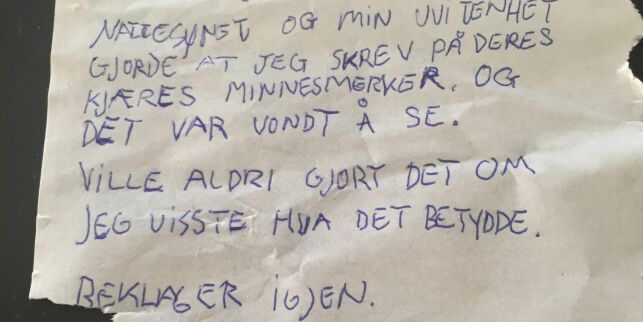 NATTESYNET OG MIN UVITENHET
GJORDE AT JEG SKREV PÅ DERES
KJÆRES MINNESMERKER. OG
DET VAR VONDT Å SE.
VILLE ALDRI GJORT DET OM
JEG VISSTE HVA DET BETYDDE.
BEKLAGER IGJEN.